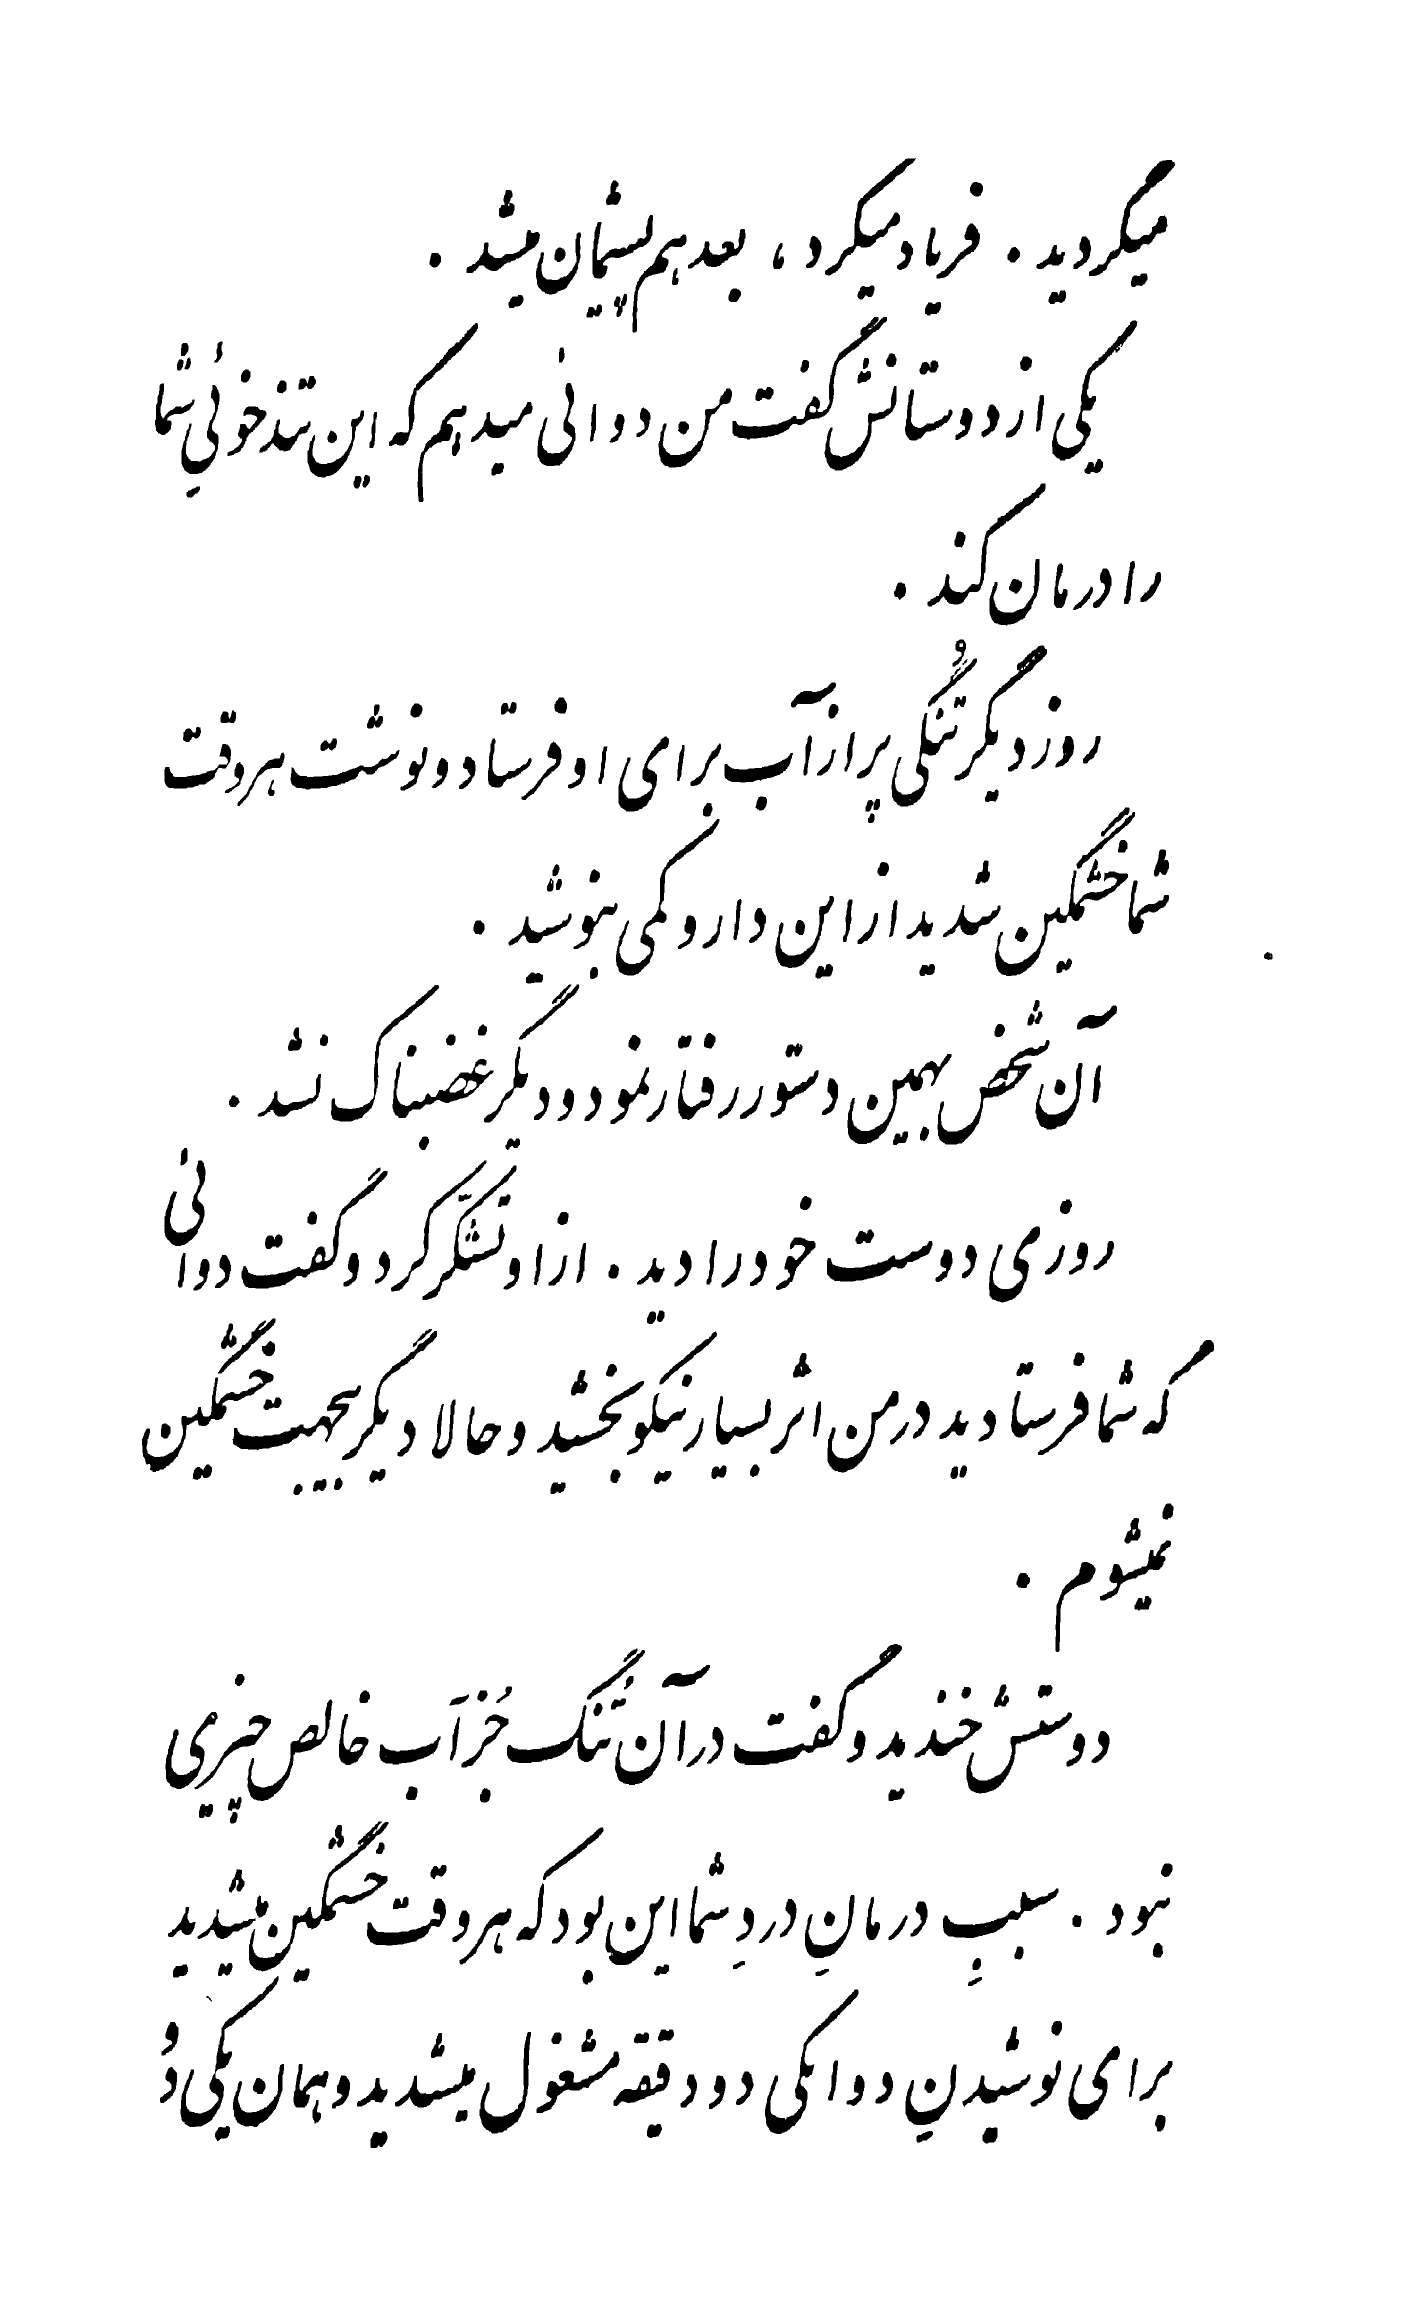 میگردید . فریاد میکرد ، بعد هم پشیمان میشد .
یکی از دوستانش گفت من دوائی میدهم که این تندخوئیِ شما
را درمان کند .
روز دیگر تُنگی پر از آب برای او فرستاد و نوشت هر وقت
شما خشمگین شدید از این دارو کمی بنوشید .
آن شخص بهمین دستور رفتار نمود و دیگر غضبناک نشد .
روزی دوست خود را دید . از او تشکّر کرد و گفت دوائی
که شما فرستادید در من اثر بسیار نیکو بخشید و حالا دیگر بیجهت خشمگین
نمیشوم .
دوستش خندید و گفت در آن تُنگ جُز آب خالص چیزی
نبود . سببِ درمانِ دردِ شما این بود که هر وقت خشمگین میشدید
برای نوشیدنِ دوا یکی دو دقیقه مشغول میشدید و همان یکی دُو